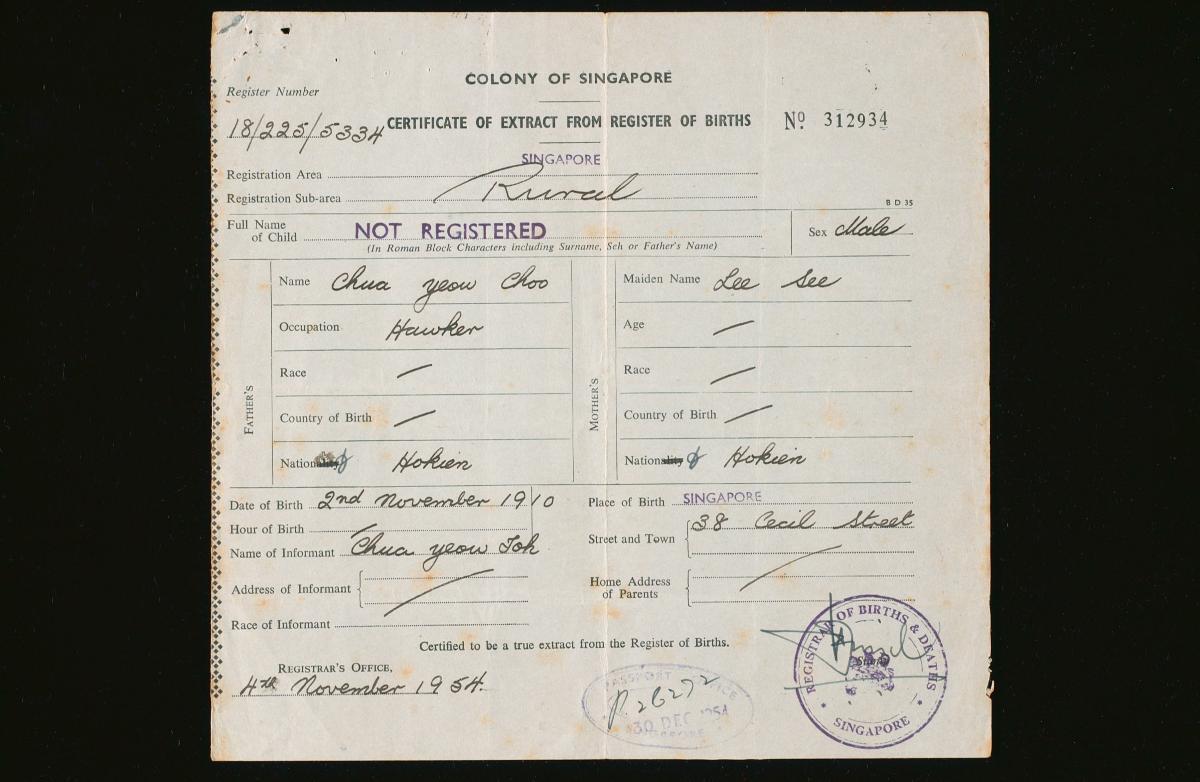 COLONY OF SINGAPORE
Register Number
18/225/5334
CERTIFICATE OF EXTRACT FROM REGISTER OF BIRTHS
Nº 312934
Registration Area SINGAPORE
Registration Sub-area Rural
B D 35
Full Name of Child NOT REGISTERED
(In Roman Block Characters including Surname, Seh or Father's Name)
Sex Male
FATHER'S
Name Chua Yeow Choo
Occupation Hawker
Race —
Country of Birth —
Nationality Hokien
MOTHER'S
Maiden Name Lee See
Age —
Race —
Country of Birth —
Nationality Hokien
Date of Birth 2nd November 1910
Hour of Birth
Name of Informant Chua Yeow Tok
Address of Informant
Race of Informant
Place of Birth SINGAPORE
Street and Town 38 Cecil Street
Home Address of Parents
Certified to be a true extract from the Register of Births.
REGISTRAR'S OFFICE,
4th November 1954.
PASSPORT OFFICE
P.26272
30 DEC 1954
REGISTRAR OF BIRTHS & DEATHS
SINGAPORE